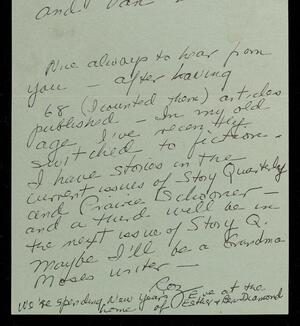 and Van
Nice always to hear from
you — after having
68 (I counted them) articles
published — In my old
age I've recently
switched to fiction.
I have stories in the
current issues of Story Quarterly
and Prairie Schooner —
and a third will be in
the next issue of Story Q.
Maybe I'll be a Grandma
Moses writer —
Roz
We're spending New Years Eve at the
home of Esther & Ben Diamond